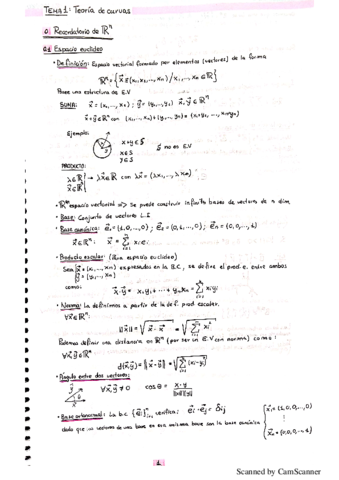 TEMA 1: Teoría de curvas
0. Recordatorio de ℝⁿ
0.1 Espacio euclídeo
• Definición: Espacio vectorial formado por elementos (vectores) de la forma
ℝⁿ = { x⃗ = (x₁, x₂, ..., xₙ) / x₁, ..., xₙ ∈ ℝ }
Posee una estructura de E.V
SUMA: x⃗ = (x₁, ..., xₙ) ; y⃗ = (y₁, ..., yₙ) x⃗, y⃗ ∈ ℝⁿ
x⃗ + y⃗ ∈ ℝⁿ con (x₁, ..., xₙ) + (y₁, ..., yₙ) = (x₁+y₁, ..., xₙ+yₙ)
Ejemplo:
x+y ∉ S
x ∈ S
y ∈ S
S no es E.V
PRODUCTO:
λ ∈ ℝ
x⃗ ∈ ℝⁿ } → λx⃗ ∈ ℝ con λx⃗ = (λx₁, ..., λxₙ)
• ℝⁿ espacio vectorial Se puede construir infinitas bases de vectores de n dim.
• Base: Conjunto de vectores L.I
• Base canónica: e⃗₁ = (1,0,...,0) ; e⃗₂ = (0,1,...,0) ; e⃗ₙ = (0,0,...,1)
x⃗ ∈ ℝⁿ: x⃗ = Σ xᵢeᵢ
• Producto escalar: (espacio euclídeo)
Sea { x⃗ = (x₁, ..., xₙ) y⃗ = (y₁, ..., yₙ) expresados en la B.C, se define el prod. e. entre ambos
como: x⃗ · y⃗ = x₁y₁ + ... + yₙxₙ = Σ xᵢyᵢ
• Norma: La definimos a partir de la def. prod escalar.
∀x⃗ ∈ ℝⁿ:
||x⃗|| = √(x⃗ · x⃗) = √(Σ xᵢ²)
Podemos definir una distancia en ℝⁿ (por ser un E.V con norma) como:
∀x⃗, y⃗ ∈ ℝⁿ
d(x⃗, y⃗) = ||x⃗ - y⃗|| = √(Σ(xᵢ-yᵢ)²)
• Ángulo entre dos vectores:
∀x⃗, y⃗ ≠ 0 cos θ = x·y / ||x|| ||y||
• Base ortonormal: La b.c {e⃗ᵢ}ⁿᵢ₌₁ verifica: e⃗ᵢ · e⃗ⱼ = δᵢⱼ
dado que los vectores de una base en esa misma base son la base canónica { x⃗₁ = (1,0,0,...,0) x⃗ₙ = (0,0,0,...,1)
1
Scanned by CamScanner